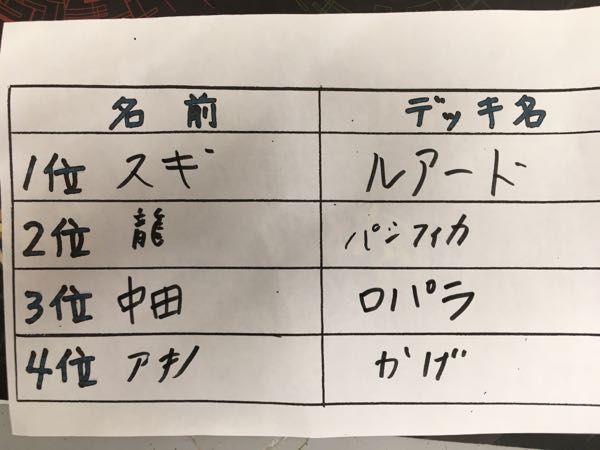 名前 デッキ名
1位 スギ ルアード
2位 龍 パシフィカ
3位 中田 ロパラ
4位 アキノ かげ